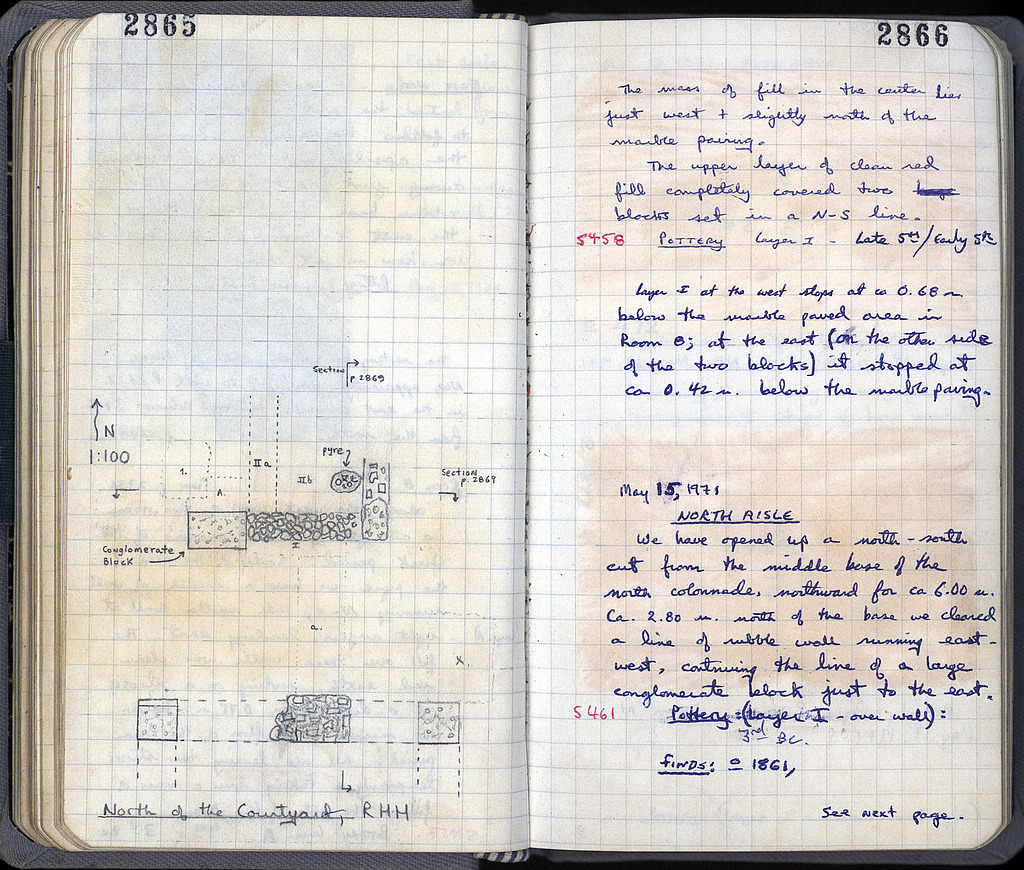 2865
Section
p. 2869
N
1:100
pyre
IIa
IIb
1.
A
Section
p. 2869
I
Conglomerate
Block
a.
x
North of the Courtyard, RHH
2866
The mass of fill in the center lies
just west + slightly north of the
marble paving.
The upper layer of clean red
fill completely covered two
blocks set in a N-S line.
5458 POTTERY Layer I - Late 5th/Early 5th
Layer I at the west stops at ca 0.68 m
below the marble paved area in
Room 8; at the east (on the other side
of the two blocks) it stopped at
ca 0.42 m. below the marble paving.
May 15, 1971
NORTH AISLE
We have opened up a north-south
cut from the middle base of the
north colonnade, northward for ca 6.00 m.
Ca. 2.80 m. north of the base we cleared
a line of rubble wall running east-
west, continuing the line of a large
conglomerate block just to the east.
5461 Pottery: (Layer I - over wall):
3rd BC.
finds: 1861,
See next page.